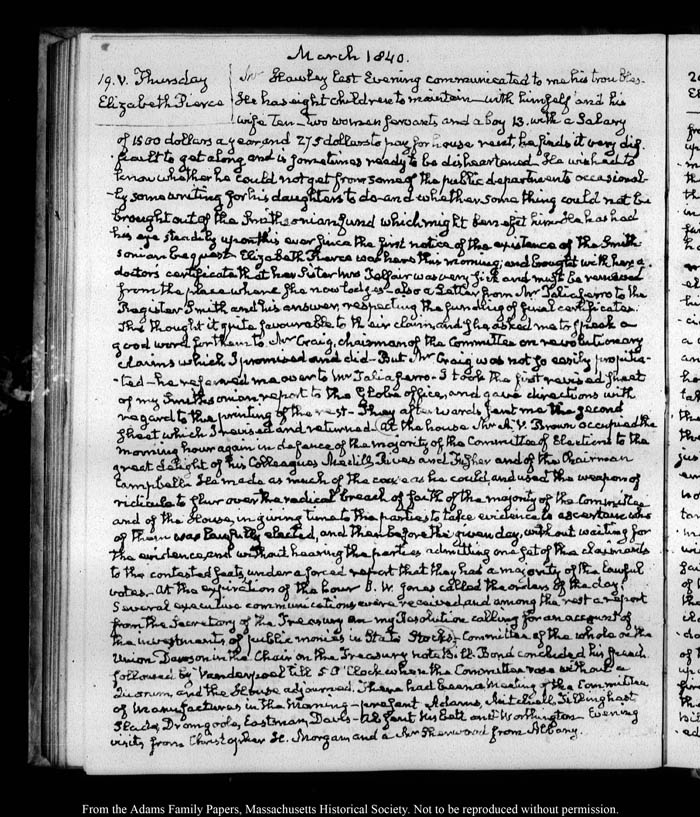 March 1840.
19. V. Thursday
Elizabeth Pierce
Mr Hawley last Evening communicated to me his troubles.
He has eight children to maintain—with himself and his
wife Ten—two women servants, and a boy 13. with a Salary
of 1500 dollars a year and 275 dollars to pay for house rent, he finds it very dif-
ficult to get along and is sometimes ready to be disheartened. He wished to
know whether he could not get from some of the public departments occasional-
ly some writing for his daughters to do—and whether some thing could not be
brought out of the Smithsonian fund which might benefit him. He has had
his eye steadily upon this ever since the first notice of the existence of the Smith-
sonian bequest. Elizabeth Pierce was here this morning, and brought with her a
doctors certificate that her Sister Mrs Telfair was very sick and must be removed
from the place where she now lodges—also a Letter from Mr Taliaferro to the
Register Smith and his answer, respecting the funding of final certificates.
She thought it quite favourable to their claim and she asked me to speak a
good word for them to Mr Craig, chairman of the Committee on revolutionary
claims which I promised and did—But Mr Craig was not so easily propitia-
ted—he referred me over to Mr Taliaferro—I took the first revised sheet
of my Smithsonian report to the Globe office, and gave directions with
regard to the printing of the rest—They afterwards sent me the second
sheet which I revised and returned. At the house Mr A. V. Brown occupied the
morning hour again in defence of the majority of the Committee of Elections to the
great delight of his Colleagues Medill, Rives and Fisher and of the Chairman
Campbell. He made as much of the case as he could, and used the weapon of
ridicule to slur over the radical breach of faith of the majority of the Committee
and of the House, in giving time to the parties to take evidence to ascertain who
of them was lawfully elected, and then before the given day, without waiting for
the evidence, and without hearing the parties admitting one set of the claimants
to the contested seats, under a forced report that they had a majority of the lawful
votes. At the expiration of the hour J. W. Jones called the orders of the day.
Several executive communications were received and among the rest a report
from the Secretary of the Treasury on my Resolution calling for an account of
the investments of public monies in State Stocks. Committee of the whole on the
Union Dawson in the Chair on the Treasury note Bill. Bond concluded his speech
followed by Vanderpoel till 5 O'Clock when the Committee rose without a
Quorum, and the House adjourned. There had been a Meeting of the Committee
of Manufactures in the Morning—present Adams, Mitchell, Tillinghast
Slade, Dromgoole, Eastman, Davis—absent and Worthington—Evening
visits from Christopher Morgan and a Mr Sherwood from Albany.
From the Adams Family Papers, Massachusetts Historical Society. Not to be reproduced without permission.